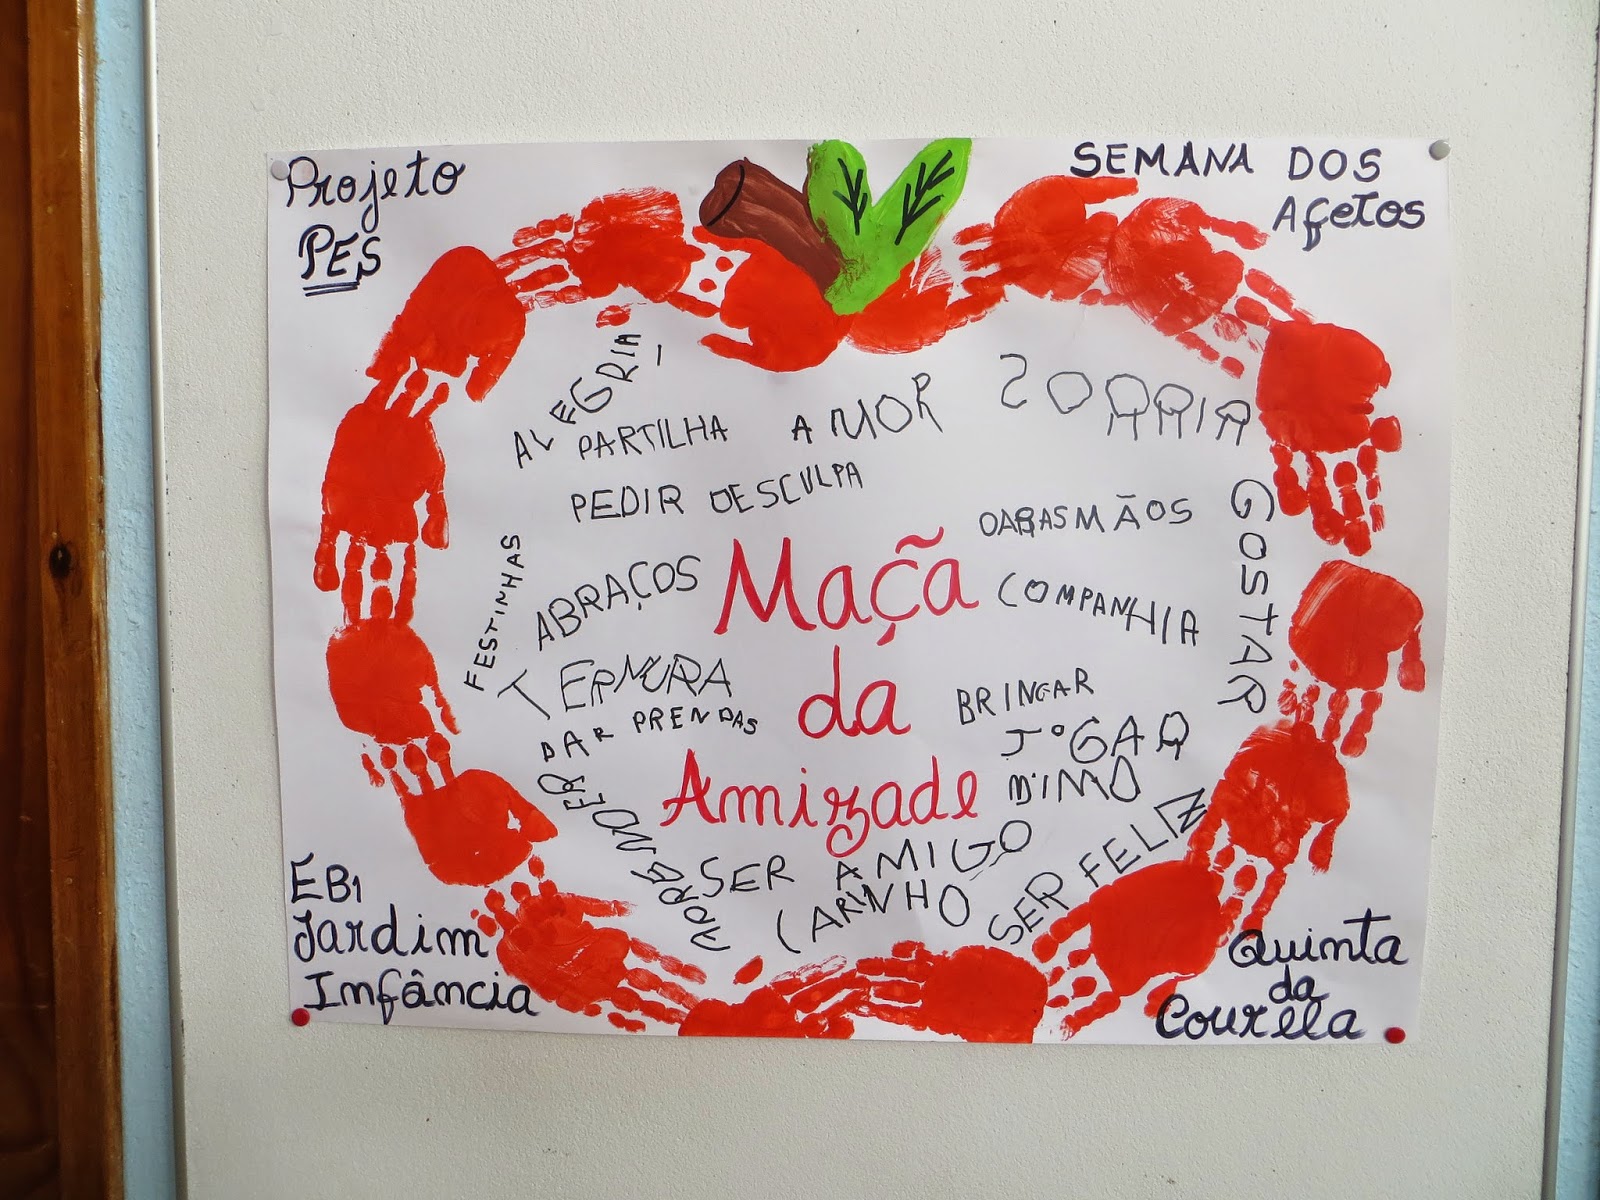 Projeto
PES
SEMANA DOS
Afetos
ALEGRIA
PARTILHA
AMOR
SORRIR
PEDIR DESCULPA
DAR AS MÃOS
GOSTAR
FESTINHAS
ABRAÇOS
Maçã
da
Amizade
COMPANHIA
TERNURA
DAR PRENDAS
BRINCAR
JOGAR
MIMO
APRENDER
SER AMIGO
CARINHO
SER FELIZ
EB1
Jardim
Infância
Quinta
da
Courela